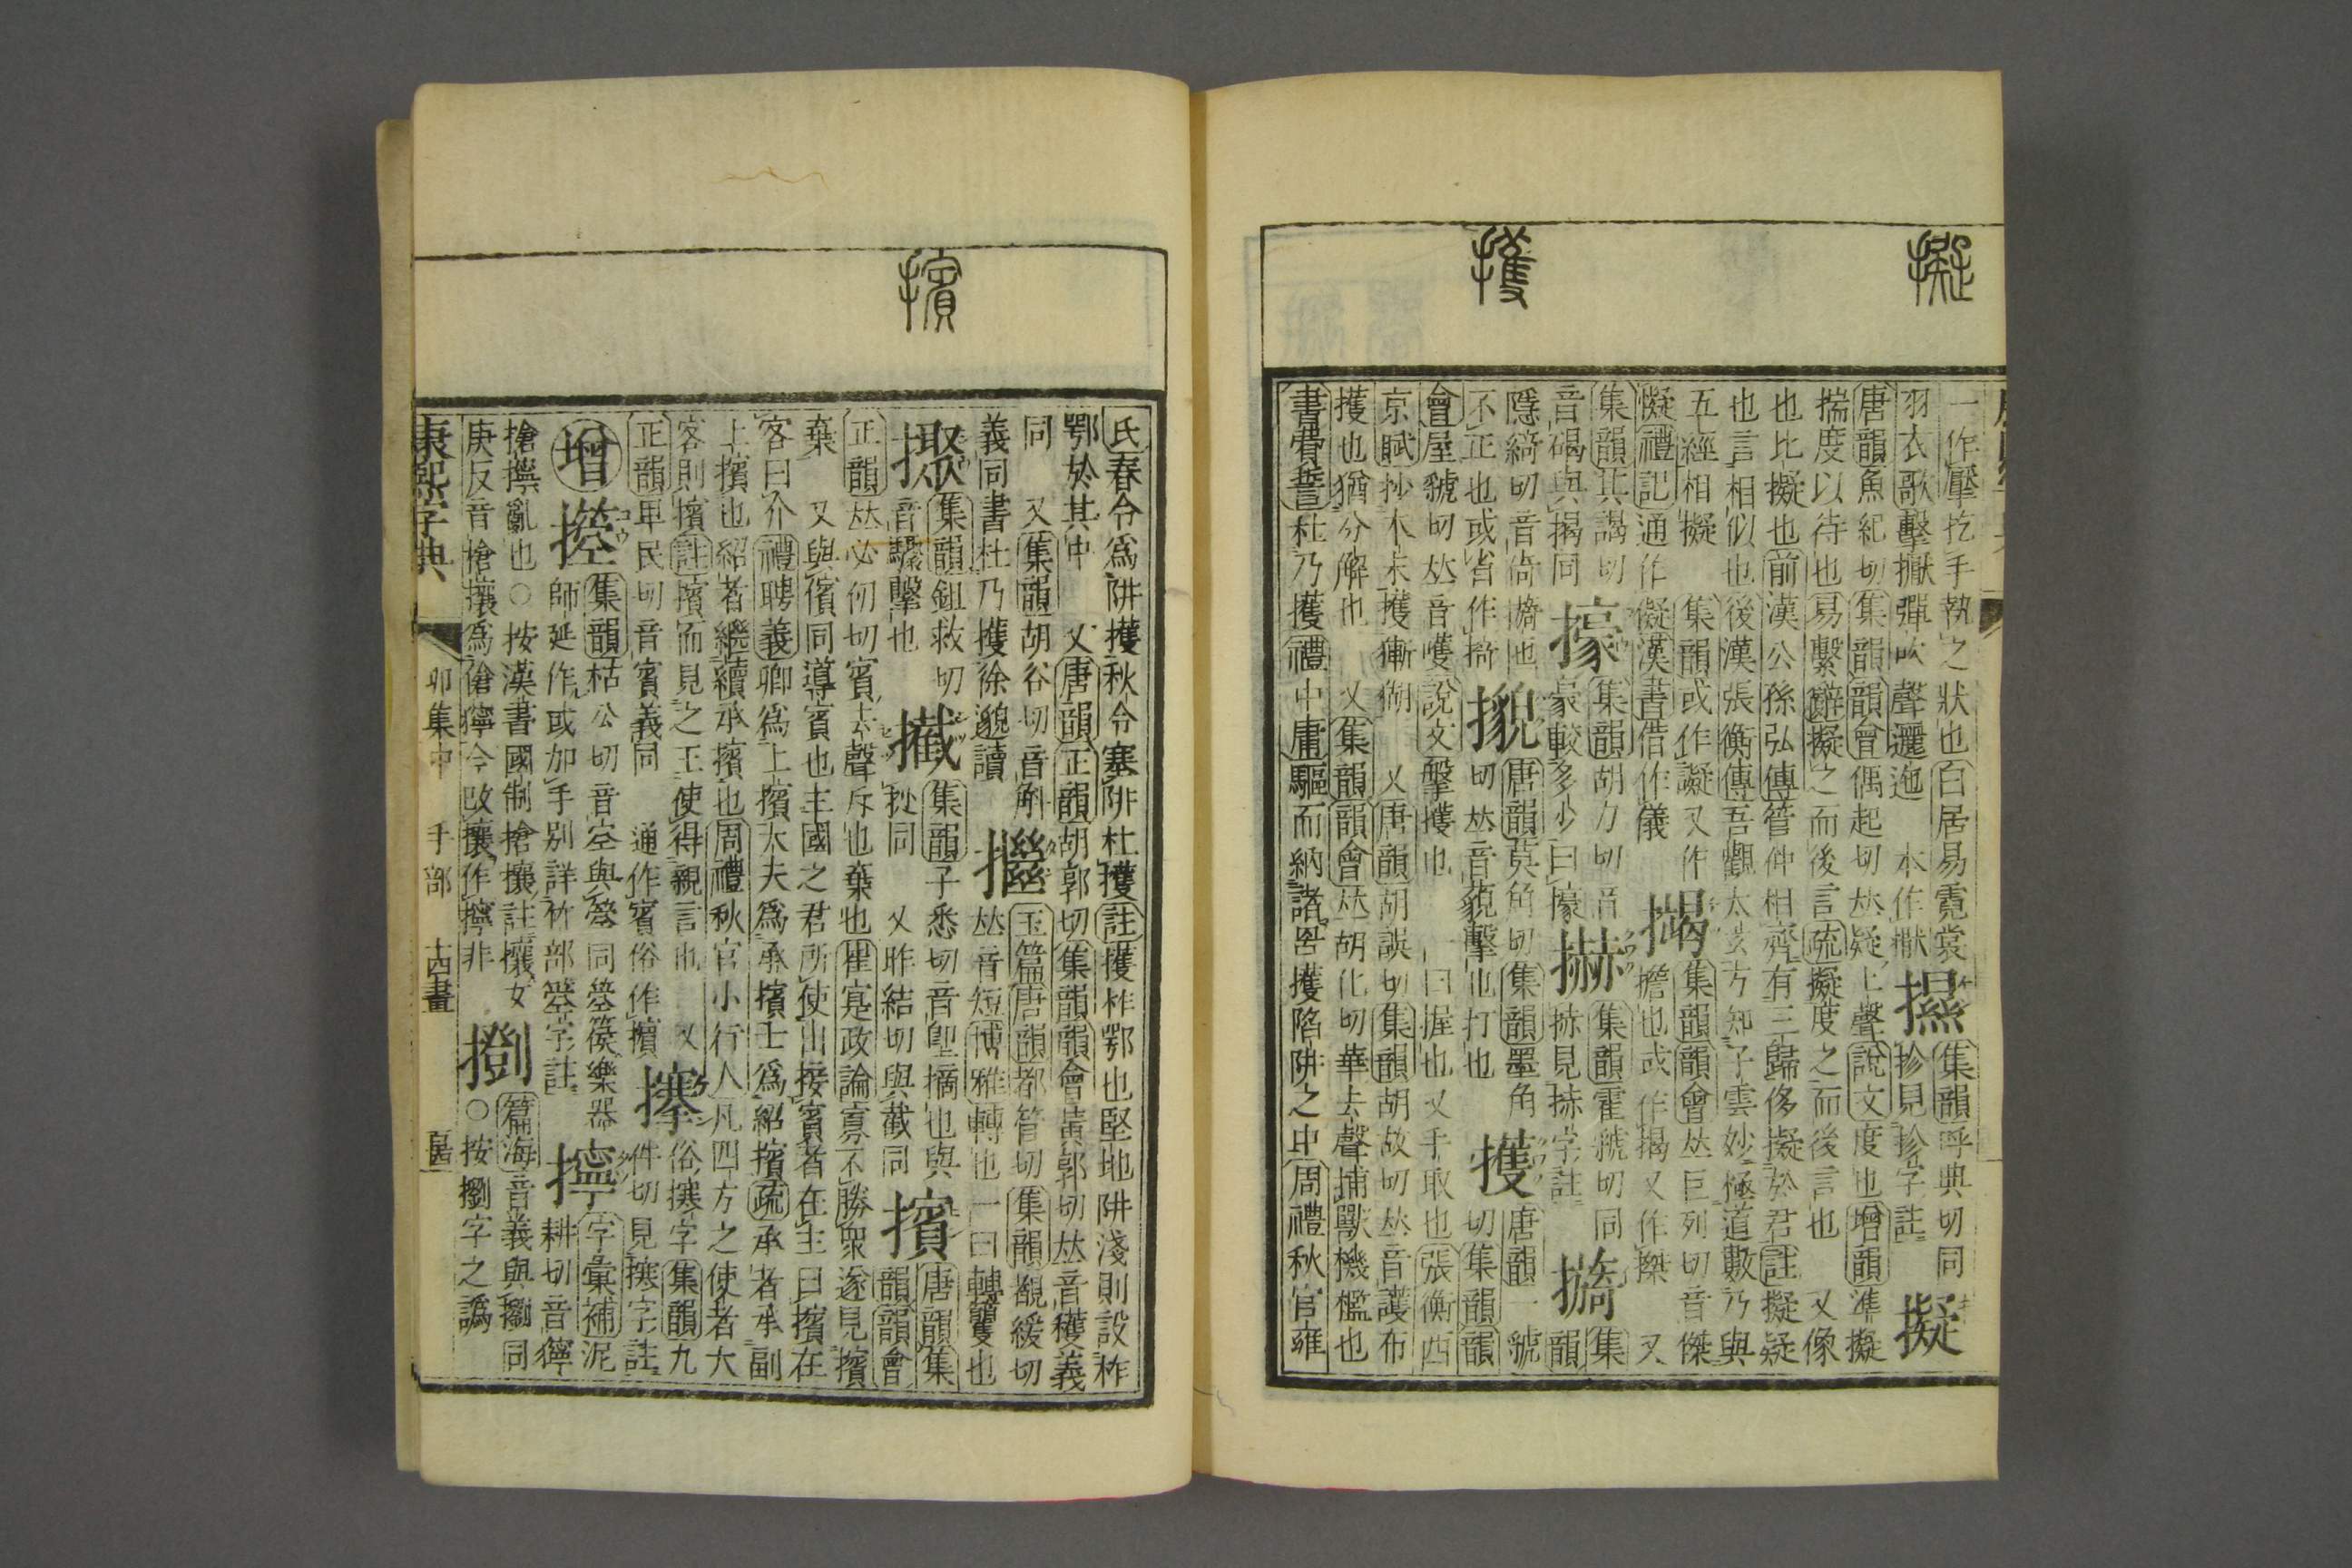 擬
擭
一作擪扢手執之狀也白居易霓裳
羽衣歌擊擫彈吹聲邐迤 本作擫
㩌
集韻呼典切同
抮見抮字註
擬
唐韻魚紀切集韻韻會偶起切𠀤疑上聲說文度也增韻準擬
揣度以待也易繫辭擬之而後言疏擬度之而後言也 又像
也比擬也前漢公孫弘傳管仲相齊有三歸侈擬於君註擬疑
也言相似也後漢張衡傳吾觀太𤣥方知子雲妙極道數乃與
五經相擬 集韻或作譺又作
㨜禮記通作儗漢書借作儀
𢷞
集韻韻會𠀤巨列切音傑 又
擔也或作揭又作㯤
集韻其謁切
音碣與揭同
㩝
集韻胡刀切音
豪較多少曰㩝
𢷾
集韻霍虢切同
捇見捇字註
㩘
集
韻
隱綺切音倚㩘也
不正也或省作掎
㩋
唐韻莫角切集韻墨角
切𠀤音藐擊也打也
擭
唐韻一虢
切集韻韻
會屋虢切𠀤音嚄說文擊擭也 一曰握也又手取也張衡西
京賦杪木末擭獑猢 又唐韻胡誤切集韻胡故切𠀤音護布
擭也猶分解也 又集韻韻會𠀤胡化切華去聲捕獸機檻也
書費誓杜乃擭禮中庸驅而納諸罟擭陷阱之中周禮秋官雍
擯
氏春令爲阱擭秋令塞阱杜擭註擭柞鄂也堅地阱淺則設柞
鄂於其中 又唐韻正韻胡郭切集韻韻會黃郭切𠀤音穫義
同 又集韻胡谷切音斛
義同書杜乃擭徐邈讀
㩁
玉篇唐韻都管切集韻覩緩切
𠀤音短博雅轉也一曰轉籰也
㨤
集韻鉏救切
音驟擊也
𢷤
集韻子悉切音堲摘也與
㧗同 又昨結切與截同
擯
唐韻集
韻韻會
正韻𠀤必刃切賓去聲斥也棄也崔寔政論寡不勝衆遂見擯
棄 又與儐同導賓也主國之君所使出接賓者在主曰擯在
客曰介禮聘義卿爲上擯大夫爲承擯士爲紹擯疏承者承副
上擯也紹者繼續承擯也周禮秋官小行人凡四方之使者大
客則擯註擯而見之王使得親言也 又
正韻卑民切音賓義同 通作賓俗作擯
㩃
俗攓字集韻九
件切見攓字註
增
㨫
集韻枯公切音空與箜同箜篌樂器
師延作或加手別詳竹部箜字註
擰
字彙補泥
耕切音獰
搶擰亂也○按漢書國制搶攘註攘女
庚反音槍攘爲傖獰今改攘作擰非
㨨
篇海音義與㩅同
○按㩅字之譌
康熙字典 卯集中 手部 十四畫